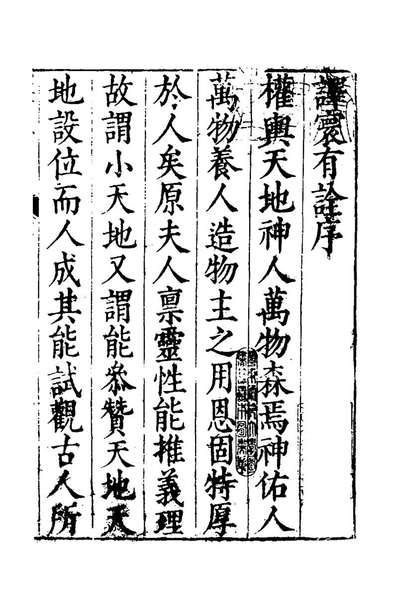 譯寰有詮序
權輿天地神人萬物森焉神佑人
萬物養人造物主之用恩固特厚
於人矣原夫人禀靈性能推義理
故謂小天地又謂能叅贊天地天
地設位而人成其能試觀古人所